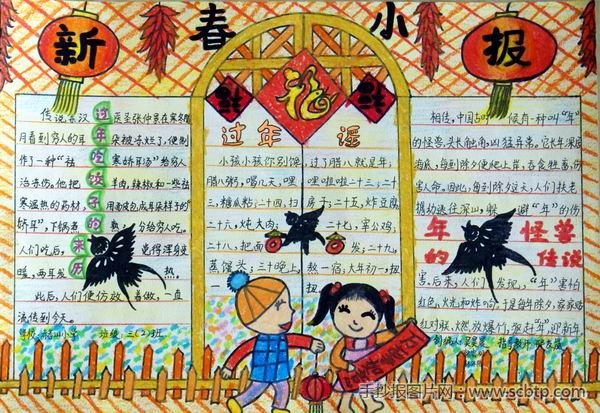 新春小报
福
过年吃饺子的来历
传说东汉 医圣张仲景在寒冬腊
月看到穷人的耳 朵被冻烂了,便制
作了一种“祛 寒娇耳汤”给穷人
治冻伤。他把 羊肉,辣椒和一些祛
寒温热的药材, 用面皮包成耳朵样子的
“娇耳”,下锅煮 熟,分给穷人吃。
人们吃后, 觉得浑身变
暖,两耳发 热,
此后,人们便仿效 着做,一直
流传到今天。
班级:三(2)班
过年谣
小孩小孩你别馋 过了腊八就是年,
腊八粥,喝几天,哩 哩啦啦二十三;二十
三,糖瓜粘;二十四,扫 房子;二十五,炸豆腐
二十六,炖大肉; 二十七,宰公鸡,
二十八,把面 发;二十九,
蒸馒头;三十晚上, 熬一宿,大年初一,扭
一扭
年怪兽的传说
相传,中国古时 候有一种叫“年”
的怪兽,头长触角,凶猛异常,它长年深居
海底,每到除夕便爬上岸,吞食牲畜,伤
害人命。因此,每到除夕这天,人们扶老
携幼逃往深山,躲 避“年”的伤
害,后来,人们 发现,“年”害怕
红色,火光和炸响,于是每年除夕,家家贴
红对联,燃放爆竹,驱赶“年”,迎新年
手抄报图片网:www.scbtp.com